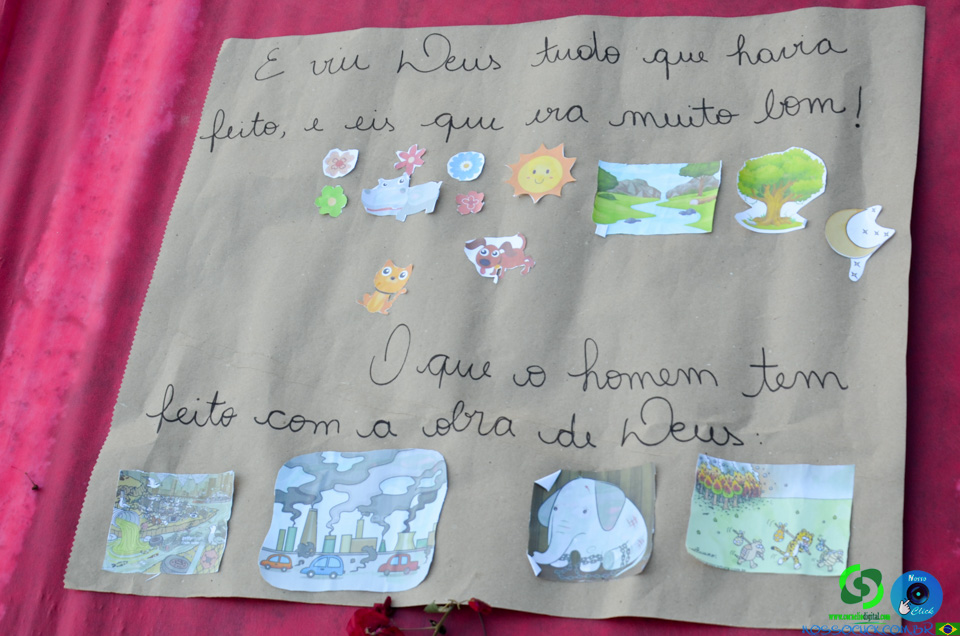 E viu Deus tudo que havia
feito, e eis que era muito bom!
O que o homem tem
feito com a obra de Deus:
Nosso
Click